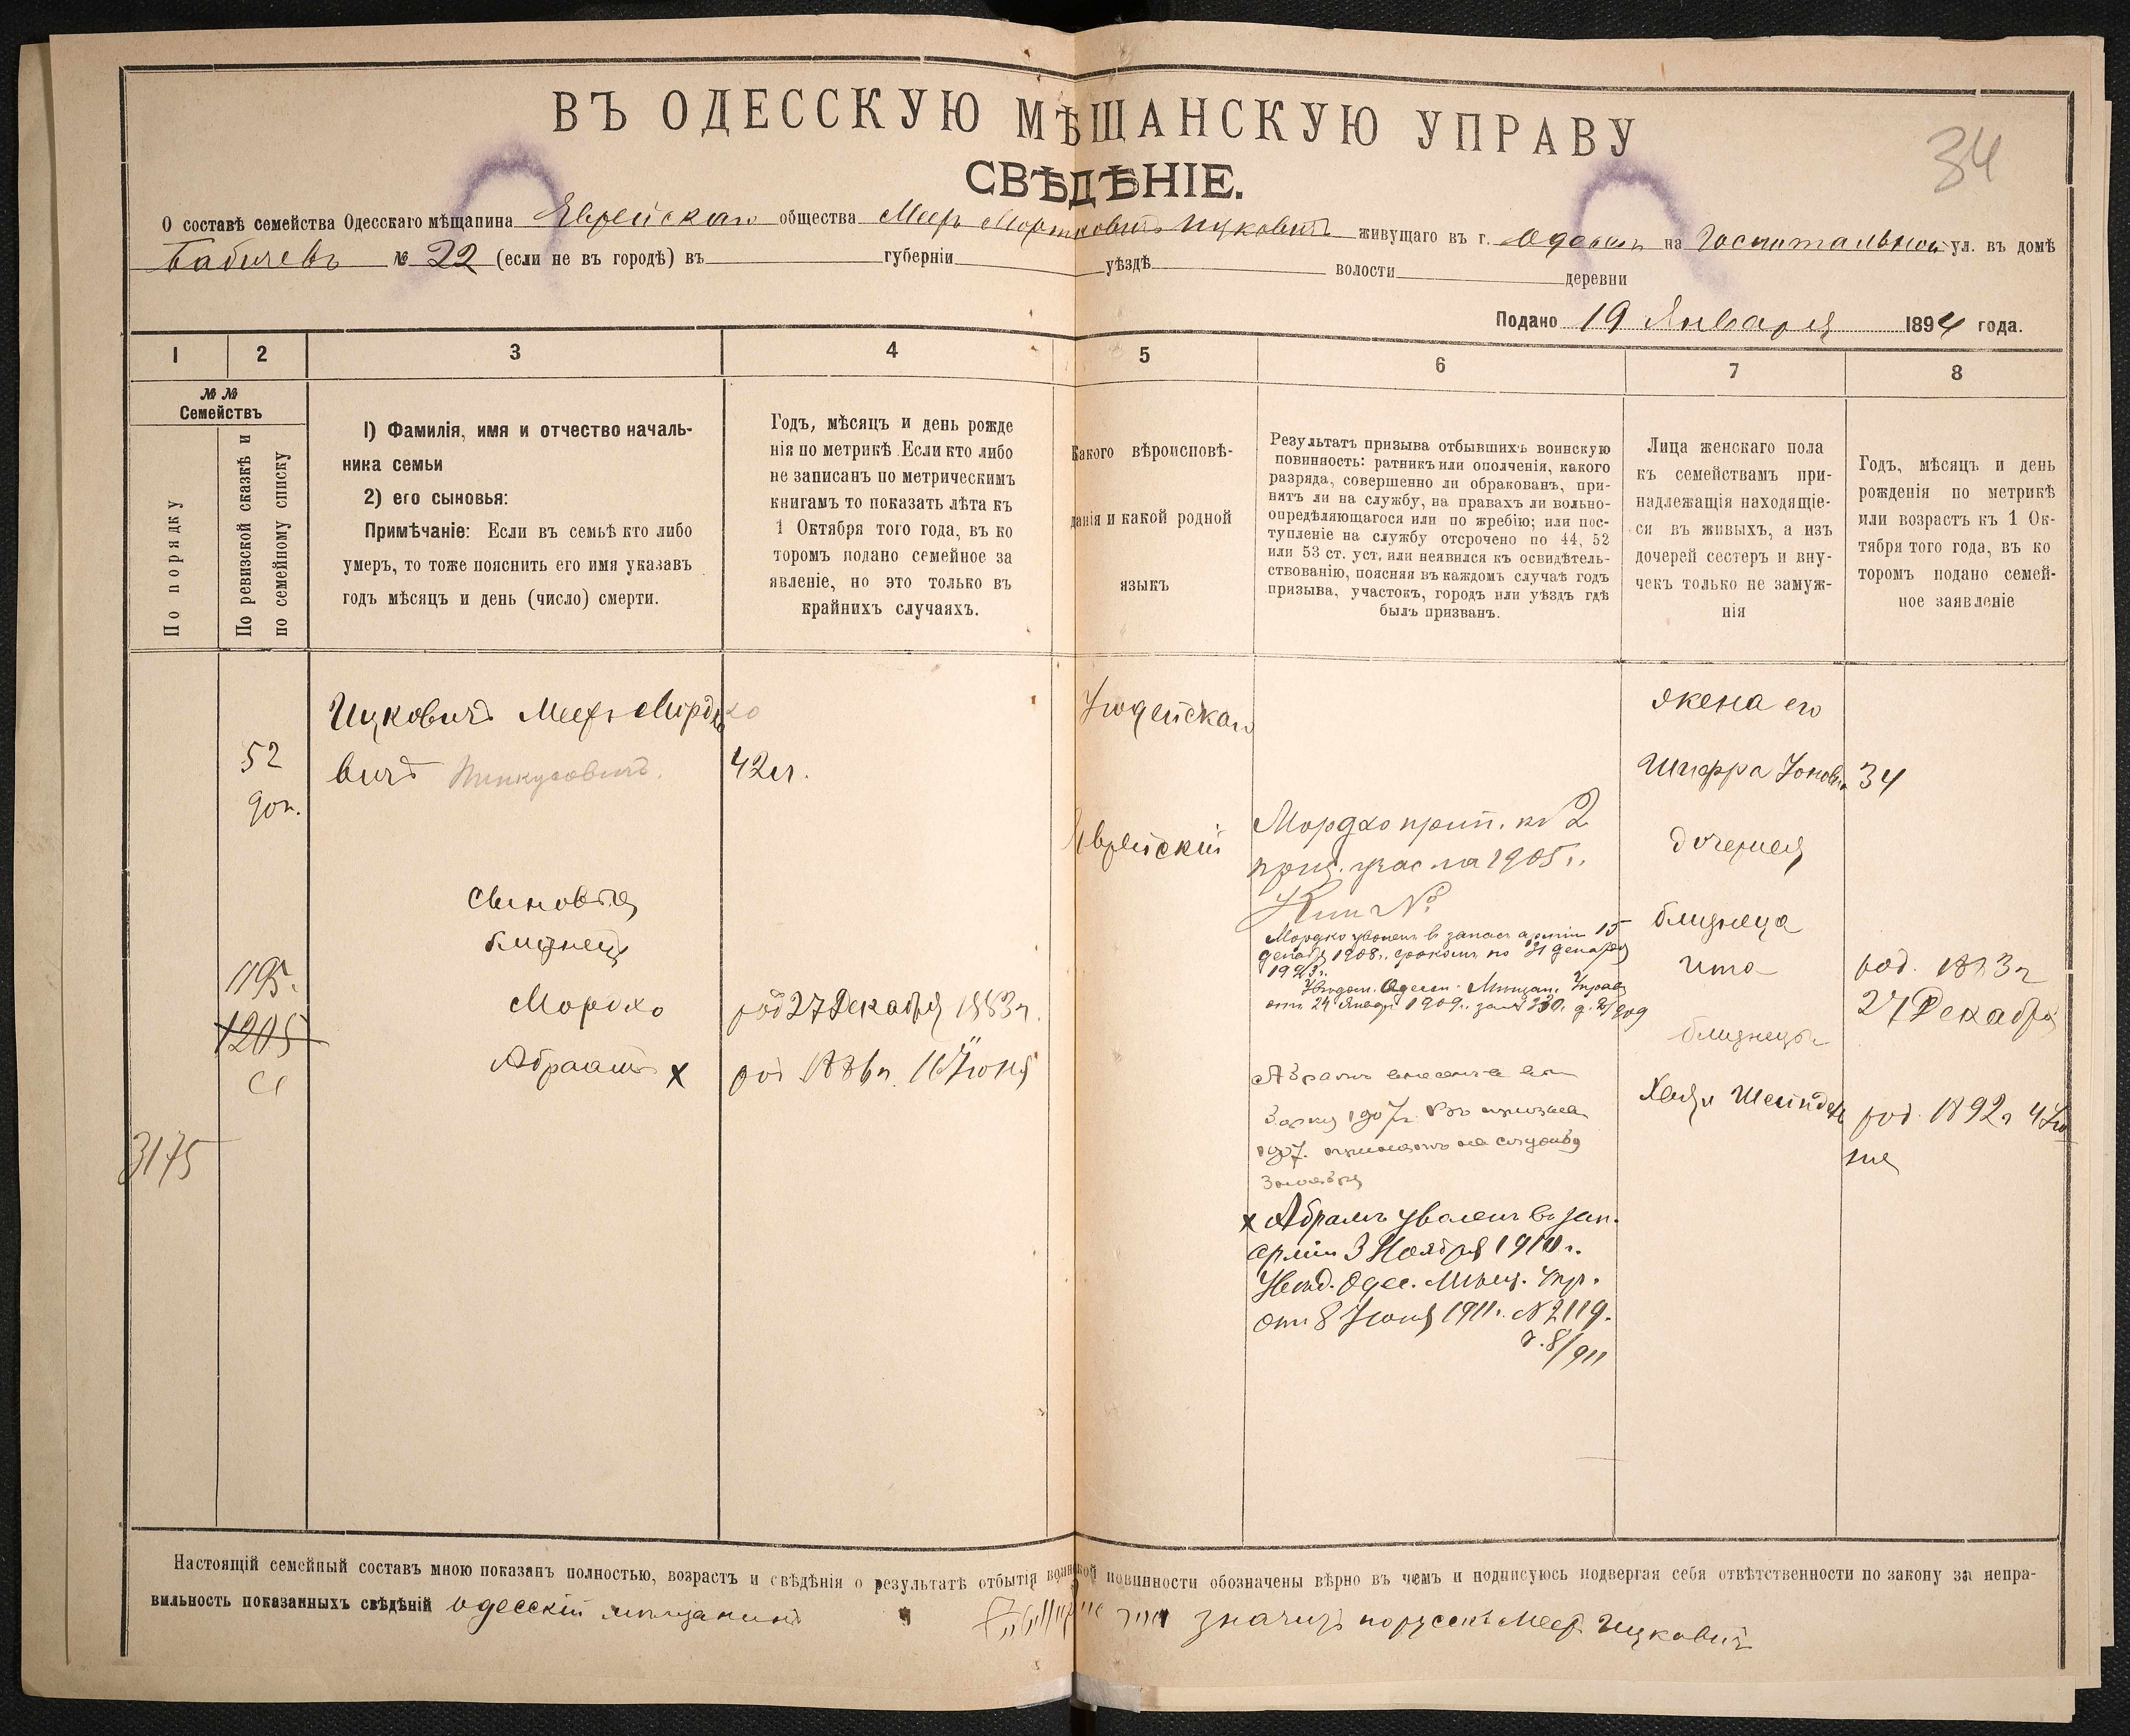 ВЪ ОДЕССКУЮ МѢЩАНСКУЮ УПРАВУ
34
СВѢДѢНІЕ.
О составѣ семейства Одесскаго мѣщанина Еврейскаго общества Меер Мортковичъ Ицковичъ живущаго въ г. Одессѣ на Госпитальной ул. въ домѣ
Бабичевъ № 22 (если не въ городѣ) въ губерніи уѣздѣ волости деревни
Подано 19 Января 1894 года.
1 2 3 4 5 6 7 8
№ №
Семействъ
По порядку
По ревизской сказкѣ и
по семейному списку
1) Фамилія, имя и отчество началь-
ника семьи
2) его сыновья:
Примѣчаніе: Если въ семьѣ кто либо
умеръ, то тоже пояснить его имя указавъ
годъ мѣсяцъ и день (число) смерти.
Годъ, мѣсяцъ и день рожде
нія по метрикѣ. Если кто либо
не записанъ по метрическимъ
книгамъ то показать лѣта къ
1 Октября того года, въ ко
торомъ подано семейное за
явленіе, но это только въ
крайнихъ случаяхъ.
Какого вѣроисповѣ-
данія и какой родной
языкъ
Результатъ призыва отбывшихъ воинскую
повинность: ратникъ или ополченія, какого
разряда, совершенно ли обракованъ, при-
нятъ ли на службу, на правахъ ли вольно-
опредѣляющагося или по жребію; или пос-
тупленіе на службу отсрочено по 44, 52
или 53 ст. уст, или неявился къ освидѣтель-
ствованію, поясняя въ каждомъ случаѣ годъ
призыва, участокъ, городъ или уѣздъ гдѣ
былъ призванъ.
Лица женскаго пола
къ семействамъ при-
надлежащія находящіе-
ся въ живыхъ, а изъ
дочерей сестеръ и вну-
чекъ только не замуж-
нія
Годъ, мѣсяцъ и день
рожденія по метрикѣ
или возрастъ къ 1 Ок-
тября того года, въ ко
торомъ подано семей-
ное заявленіе
52
доп.
1195.
1205
3175
Ицковичъ Меер Мордко
вичъ
42 л.
Сыновья
близнецъ
Мордко род 27 Декабря 1883 г.
Абрамъ x род 1886 г. 16 Іюня
Іюдейскаго
Еврейскій
Мордко прип. къ 2
приз. учас на 1905 г.
Мордко уволенъ в запасъ арміи 15
декабр 1908 г. срокомъ по 31 декабря
1923 г.
Увѣдом. Одесс. Мѣщан. Управ
отъ 24 Январ 1909 г. за № 330. д. 2/909
Абрамъ внесенъ въ
1907 г. Въ призывъ
1907. принятъ на службу
x Абрамъ уволенъ въ зап.
арміи 3 Ноября 1910 г.
Увѣд. Одес. Мѣщ. Упр.
отъ 8 Іюня 1911 г. № 2119.
д. 8/911
жена его
Шифра Іоновна 34
дочери
близнеца
Ита род. 1883 г
27 Декабря
близнецы
Хая Шейндель род. 1892 г 4 Ію
ня
Настоящій семейный составъ мною показанъ полностью, возрастъ и свѣдѣнія о результатѣ отбытія воинской повинности обозначены вѣрно въ чемъ и подписуюсь подвергая себя отвѣтственности по закону за непра-
вильность показанныхъ свѣдѣній одесскій мѣщанинъ значитъ порусскѣ Меер Ицковичъ